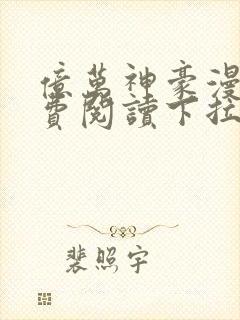 億萬神豪漫
費閱讀下拉
裴照宇